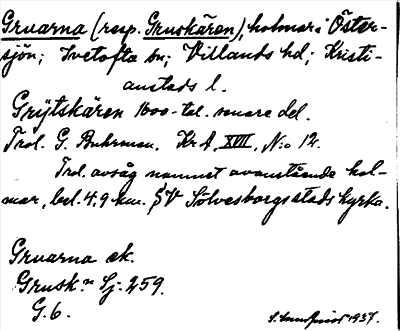 Gruarna (resp. Gruskären), holmar i Öster-
sjön; Ivetofta sn; Villands hd; Kristi-
anstads l.
Grÿtskären 1600-tal. senare del.
Trol. G. Buhrman. Kr A, XVII, N:o 12.
Trol. avsåg namnet ovanstående hol-
mar, bel. 4,9 km. SV Sölvesborgs stads kyrka.
Gruarna ek.
Grusk:n Sj. 259.
G. 6.
1937.